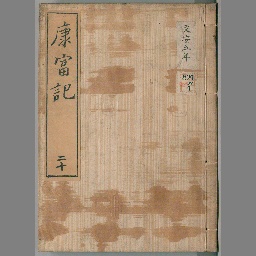 康富記
二十
文安五年